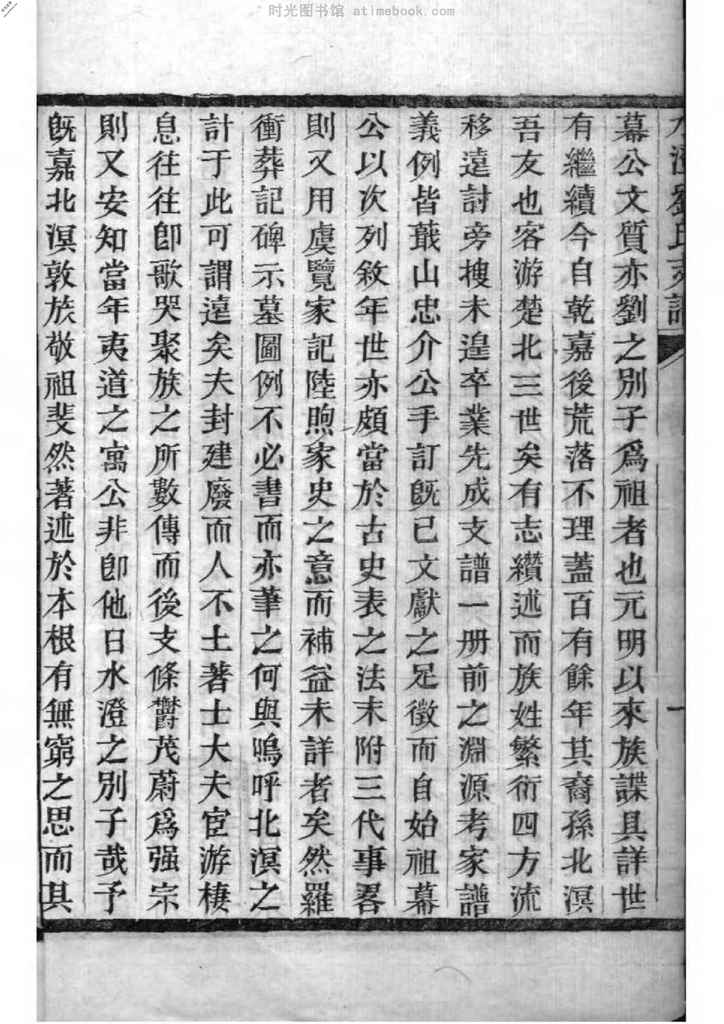 时光图书馆 atimebook.com
水澄劉氏支譜 一
幕公文質亦劉之別子爲祖者也元明以來族諜具詳世
有繼續今自乾嘉後荒落不理蓋百有餘年其裔孫北溟
吾友也客游楚北三世矣有志纘述而族姓繁衍四方流
移遠討旁搜未遑卒業先成支譜一册前之淵源考家譜
義例皆蕺山忠介公手訂旣已文獻之足徵而自始祖幕
公以次列敘年世亦頗當於古史表之法末附三代事畧
則又用虞覽家記陸煦家史之意而補益未詳者矣然羅
衝葬記碑示墓圖例不必書而亦葦之何與嗚呼北溟之
計于此可謂遠矣夫封建廢而人不土著士大夫宦游棲
息往往卽歌哭聚族之所數傳而後支條欝茂蔚爲强宗
則又安知當年夷道之寓公非卽他日水澄之別子哉予
旣嘉北溟敦族敬祖斐然著述於本根有無窮之思而其